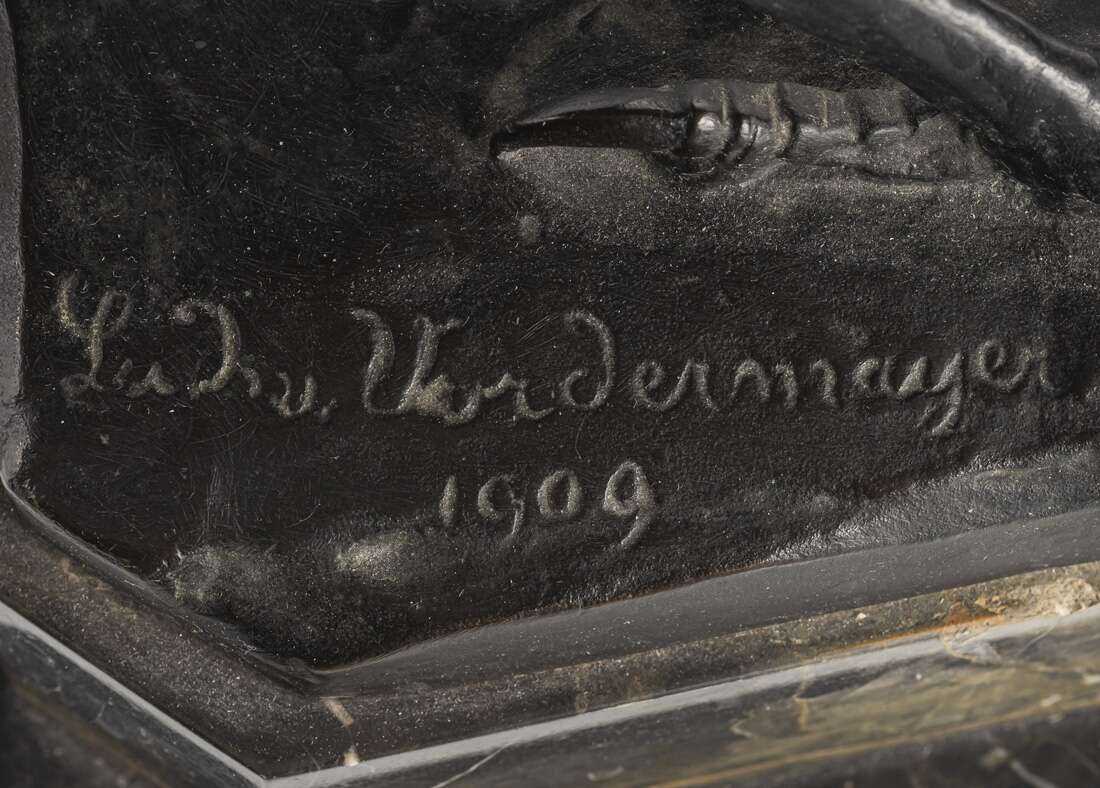 Ludw. Vordermayer
1909